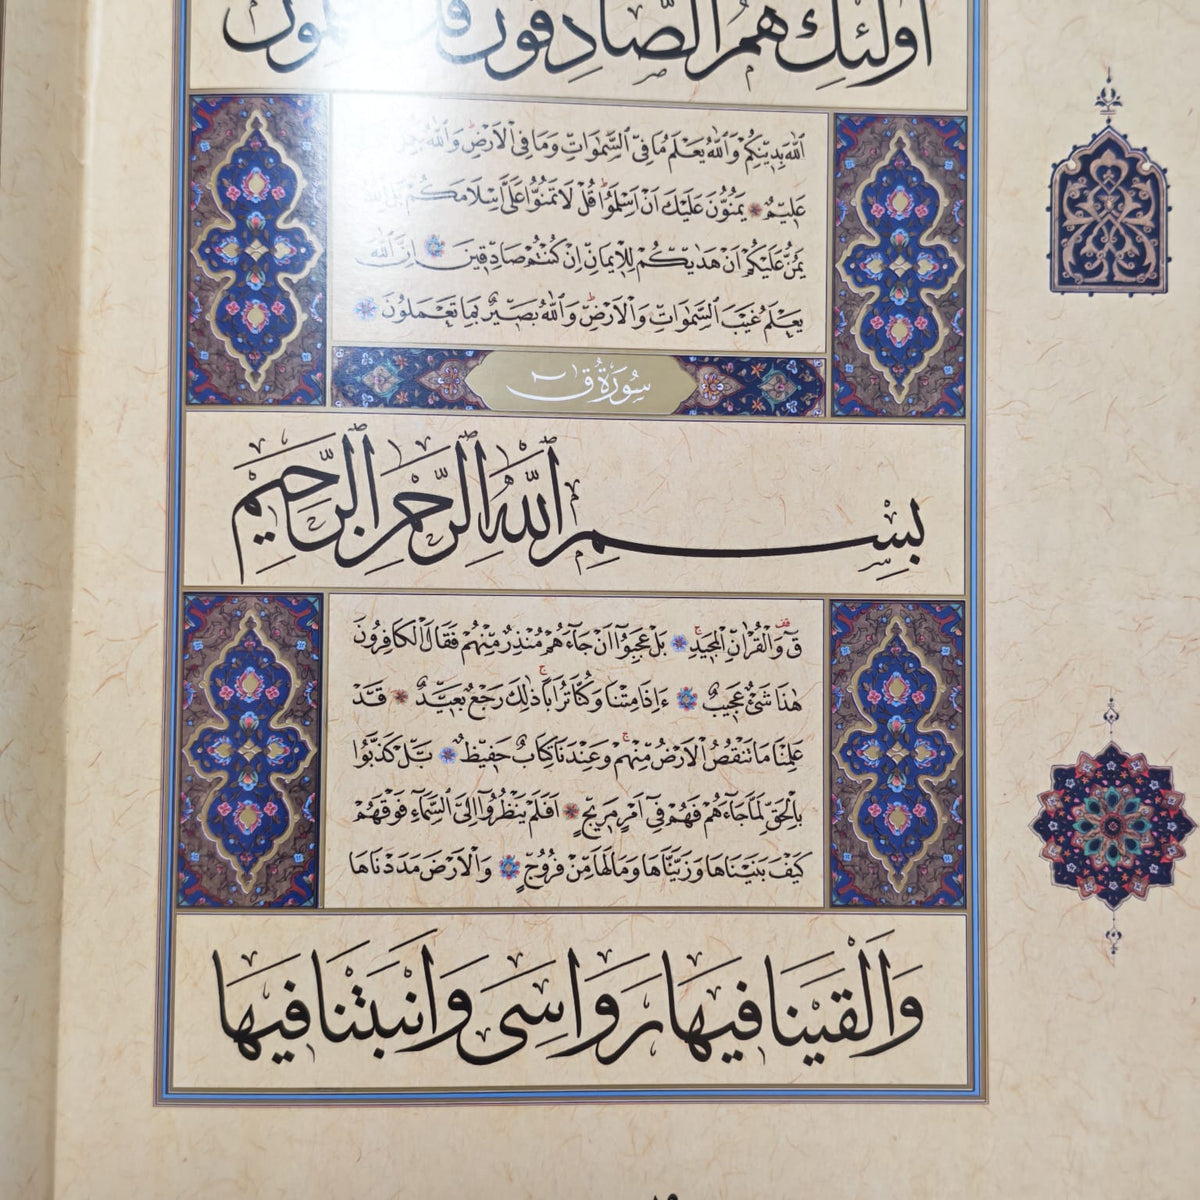 اُولٰئِكَ هُمُ الصَّادِقُونَ قُلْ اَتُعَلِّمُونَ
اللّٰهَ بِدِينِكُمْ وَاللّٰهُ يَعْلَمُ مَا فِي السَّمٰوَاتِ وَمَا فِي الْاَرْضِ وَاللّٰهُ بِكُلِّ شَيْءٍ
عَلِيمٌ يَمُنُّونَ عَلَيْكَ اَنْ اَسْلَمُوا قُلْ لَا تَمُنُّوا عَلَيَّ اِسْلَامَكُمْ بَلِ اللّٰهُ
يَمُنُّ عَلَيْكُمْ اَنْ هَدٰيكُمْ لِلْاِيمَانِ اِنْ كُنْتُمْ صَادِقِينَ اِنَّ اللّٰهَ
يَعْلَمُ غَيْبَ السَّمٰوَاتِ وَالْاَرْضِ وَاللّٰهُ بَصِيرٌ بِمَا تَعْمَلُونَ
سُورَةُ قٓ
بِسْمِ اللّٰهِ الرَّحْمٰنِ الرَّحِيمِ
قٓ وَالْقُرْاٰنِ الْمَجِيدِ بَلْ عَجِبُوا اَنْ جَاءَهُمْ مُنْذِرٌ مِنْهُمْ فَقَالَ الْكَافِرُونَ
هٰذَا شَيْءٌ عَجِيبٌ ءَاِذَا مِتْنَا وَكُنَّا تُرَابًا ذٰلِكَ رَجْعٌ بَعِيدٌ قَدْ
عَلِمْنَا مَا تَنْقُصُ الْاَرْضُ مِنْهُمْ وَعِنْدَنَا كِتَابٌ حَفِيظٌ بَلْ كَذَّبُوا
بِالْحَقِّ لَمَّا جَاءَهُمْ فَهُمْ فِي اَمْرٍ مَرِيجٍ اَفَلَمْ يَنْظُرُوا اِلَى السَّمَاءِ فَوْقَهُمْ
كَيْفَ بَنَيْنَاهَا وَزَيَّنَّاهَا وَمَا لَهَا مِنْ فُرُوجٍ وَالْاَرْضَ مَدَدْنَاهَا
وَاَلْقَيْنَا فِيهَا رَوَاسِيَ وَاَنْبَتْنَا فِيهَا